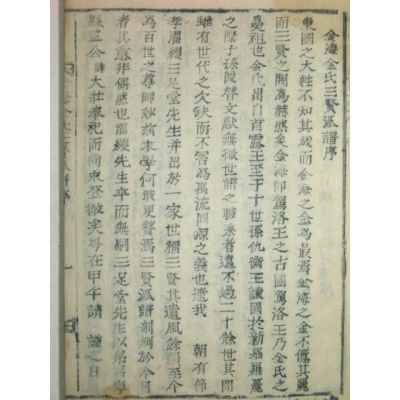 金海金氏三賢派譜序
東國之大姓不知其幾而金海之金爲最焉金海之金不億其麗
而三賢之閥爲赫然矣金海卽駕洛王之古國駕洛王乃金氏之
皇祖也金氏出自首露王至于十世孫仇衡王讓國於新羅羅麗
之際子孫陵替文獻無徵世譜之載來者遠不過二十餘世其間
雖有世代之欠缺而不害爲萬流同源之義也逮我 朝有節
孝濯纓三足堂先生幷出於一家世稱三賢其遺風餘韻至今
爲百世之尊師 末學何敢更贅焉三賢派譜剞劂於今日
者其意非偶然也濯纓先生卒而無嗣三足堂先生以 子
縣監公諱大壯奉祀而尙未登徵矣 在甲午請 諡之日